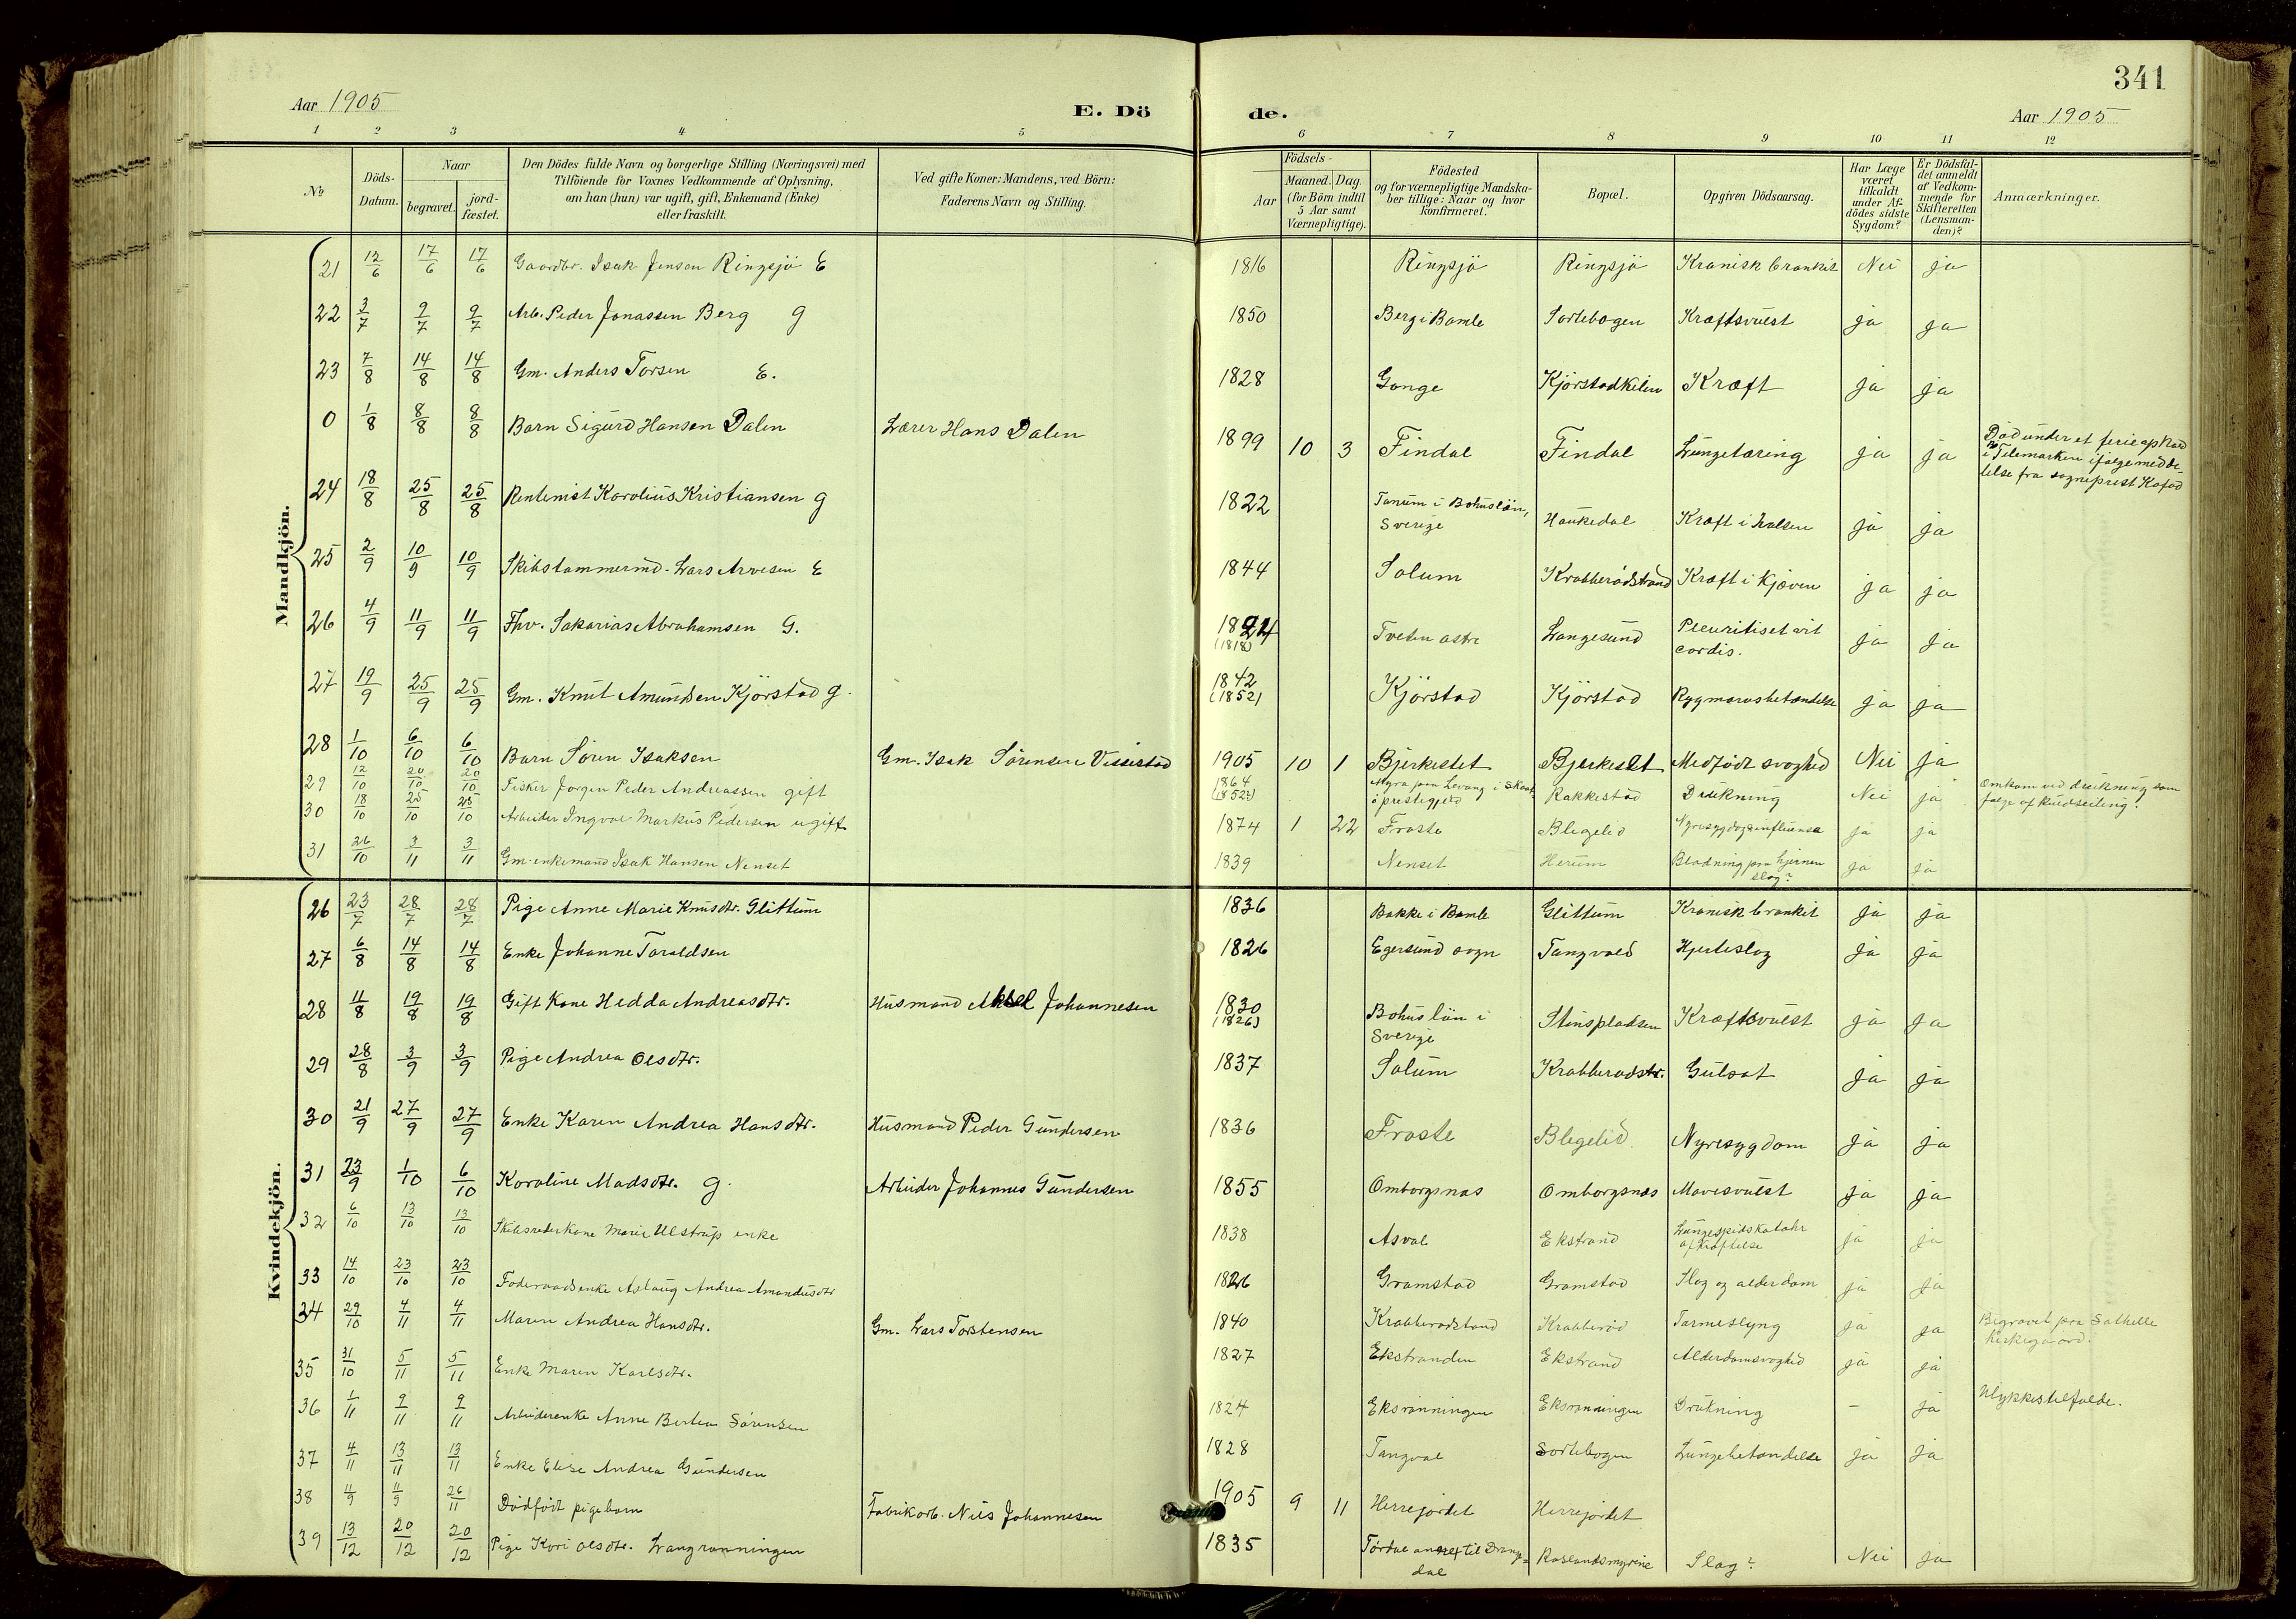 341
Aar 1905
E. Dö
de.
Aar 1905
1 2 3 4 5 6 7 8 9 10 11 12
No
Döds-Datum.
Naar
begravet.
jord-fæstet.
Den Dödes fulde Navn og borgerlige Stilling (Næringsvei) med
Tilföiende for Voxnes Vedkommende af Oplysning,
om han (hun) var ugift, gift, Enkemand (Enke)
eller fraskilt.
Ved gifte Koner: Mandens, ved Börn:
Faderens Navn og Stilling.
Födsels-
Aar
Maaned. Dag.
(for Börn indtil
5 Aar samt
Værnepligtige).
Födested
og for værnepligtige Mandska-
ber tillige: Naar og hvor
konfirmeret.
Bopæl.
Opgiven Dödsaarsag.
Har Læge
været
tilkaldt
under Af-
dödes sidste
Sygdom?
Er Dödsfal-
det anmeldt
af Vedkom-
mende for
Skifteretten
(Lensman-
den)?
Anmærkninger.
Mandkjön.
21 12/6 17/6 17/6 Gaardbr. Isak Jensen Ringsjö E 1816 Ringsjö Ringsjö Kronisk bronkit Nei ja
22 3/7 9/7 9/7 Arb. Peder Jonassen Berg g 1850 Berg i Bamle Sortebogen Kræftsvulst ja ja
23 7/8 14/8 14/8 Gm. Anders Torsen E. 1828 Gonge Kjörstadkilen Kræft ja ja
0 1/8 8/8 8/8 Barn Sigurd Hansen Dalen Lærer Hans Dalen 1899 10 3 Findal Findal Lungetæring ja ja Död under et ferieophold
i Telemarken ifølge medde-
lelse fra sogneprest Kofod
24 18/8 25/8 25/8 Rentenist Karolius Kristiansen g 1822 Tanum i Bohuslän,
Sverige Haukedal Kræft i halsen ja ja
25 2/9 10/9 10/9 Skibstømmermd. Lars Arvesen E 1844 Solum Krabberödstrand Kræft i Kjæven ja ja
26 4/9 11/9 11/9 Fhv. Sakarias Abrahamsen G. 1824
(1818) Tveten østre Langesund Pleuritis et vit
cordis. ja ja
27 19/9 25/9 25/9 Gm. Knut Amundsen Kjörstad g. 1842
(1852) Kjörstad Kjörstad Rygmarvsbetændelse ja ja
28 1/10 6/10 6/10 Barn Sören Isaksen Gm. Isak Sörensen Vissestad 1905 10 1 Bjerkeset Bjerkeset Medfødt svaghed Nei ja
29 12/10 20/10 20/10 Fisker Jørgen Peder Andreassen gift 1864
(1852?) Myra paa Levang i Skaat-
ö prestegjeld Rakkestad Drukning Nei ja Omkom ved drukning som
følge af kuldseiling.
30 18/10 25/10 25/10 Arbeider Ingvol Markus Pedersen ugift 1874 1 22 Froste Blegelid Nyresygdom influensa ja ja
31 26/10 3/11 3/11 Gm-enkemand Isak Hansen Nenset 1839 Nenset Herum Blødning paa hjernen
slag? ja ja
Kvindekjön.
26 23/7 28/7 28/7 Pige Anne Marie Knusdtr. Glittum 1836 Bakke i Bamle Glittum Kronisk bronkit ja ja
27 6/8 14/8 14/8 Enke Johanne Taraldsen 1826 Egersund sogn Tangvald Hjerteslag ja ja
28 11/8 19/8 19/8 Gift Kone Hedda Andreasdtr. Husmand Aksel Johannesen 1830
(1826) Bohuslän i
Sverige Stenspladsen Kræftsvulst ja ja
29 28/8 3/9 3/9 Pige Andrea Olsdtr. 1837 Solum Krabberødstr. Gulsot ja ja
30 21/9 27/9 27/9 Enke Karen Andrea Hansdtr. Husmand Peder Gundersen 1836 Froste Blegelid Nyresygdom ja ja
31 23/9 1/10 6/10 Karoline Madsdtr. g. Arbeider Johannes Gundersen 1855 Omborgsnæs Omborgsnæs Mavesvulst ja ja
32 6/10 13/10 13/10 Skibsrederkone Marie Ulstrup enke 1838 Asvol Ekstrand Lungespidskatahr
afkræftelse ja ja
33 14/10 23/10 23/10 Foderaadsenke Aslaug Andrea Amundsdtr 1826 Gromstad Gromstad Slag og alderdom ja ja
34 29/10 4/11 4/11 Maren Andrea Hansdtr. Gm. Lars Torstensen 1840 Krabberødstrand Krabberød Tarmeslyng ja ja Begravet paa Sathelle
kirkegaard.
35 31/10 5/11 5/11 Enke Maren Karlsdtr. 1827 Ekstranden Ekstrand Alderdomsvaghed ja ja
36 1/11 9/11 9/11 Arbeiderenke Anne Bertea Sörensen 1824 Eksrønningen Eksrønningen Drukning – ja Ulykkestilfælde.
37 4/11 13/11 13/11 Enke Elise Andrea Gundersen 1828 Tangvol Sortebogen Lungebetændelse ja ja
38 11/9 11/9 26/11 Dödfödt pigebarn Fabrikarb. Nils Johannesen 1905 9 11 Herrejordet Herrejordet
39 13/12 20/12 20/12 Pige Kari Olsdtr. Langrønningen 1835 Tördal annex til Drange-
dal Roslandsmyrene Slag? Nei ja